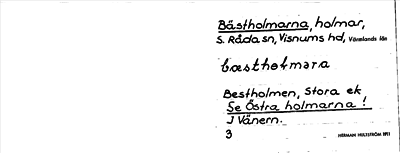 Bästholmarna, holmar,
S. Råda sn, Visnums hd, Värmlands län
bæsthol̩mara
Bestholmen, Stora ek
Se Östra holmarna!
I Vänern.
3
HERMAN HULTSTRÖM 1971